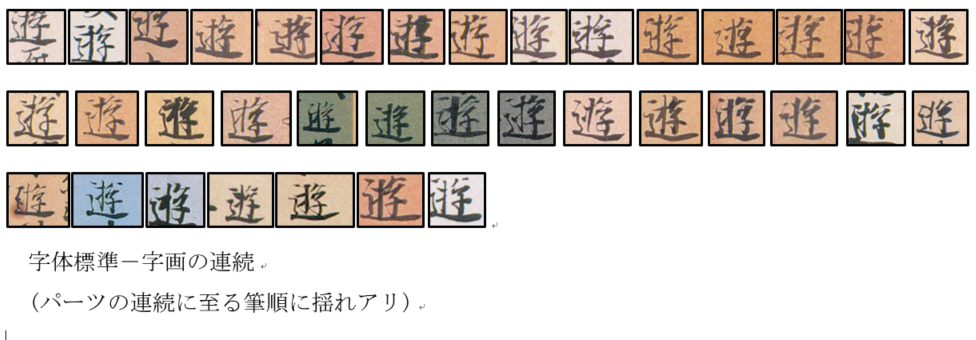 遊遊遊遊遊遊遊遊遊遊遊遊遊遊遊
遊遊遊遊遊遊遊遊遊遊遊遊遊遊
遊遊遊遊遊遊遊
字体標準－字画の連続
（パーツの連続に至る筆順に揺れアリ）